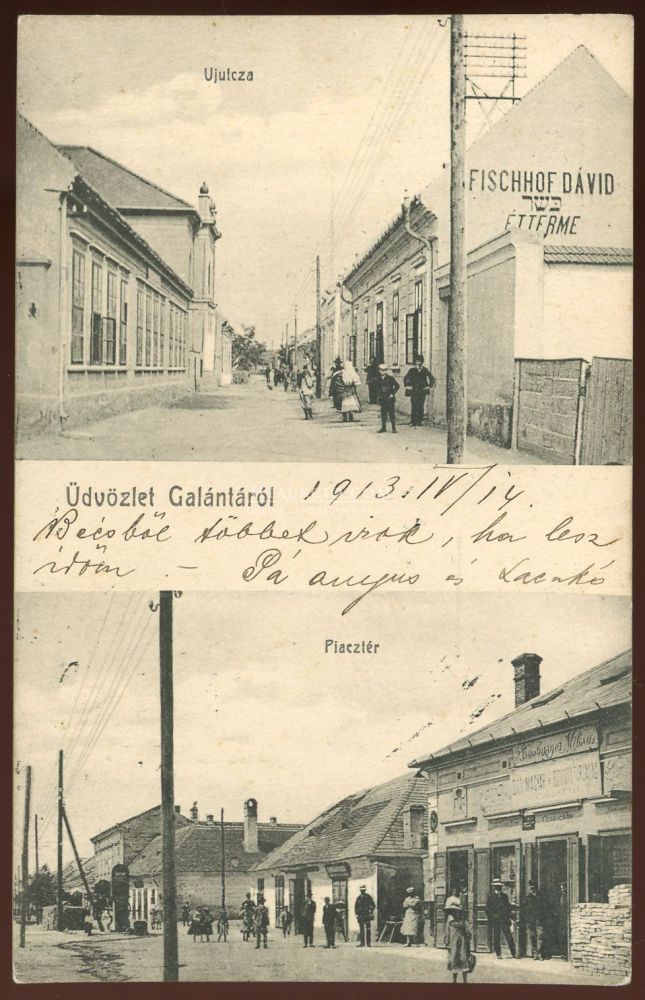 Ujutcza
FISCHHOF DÁVID
כשר
ÉTTERME
Üdvözlet Galántáról 1913. IV/14.
Bécsből többet irok, ha lesz
időm - Pá anyus és Laczkó
Piacztér
Miksa